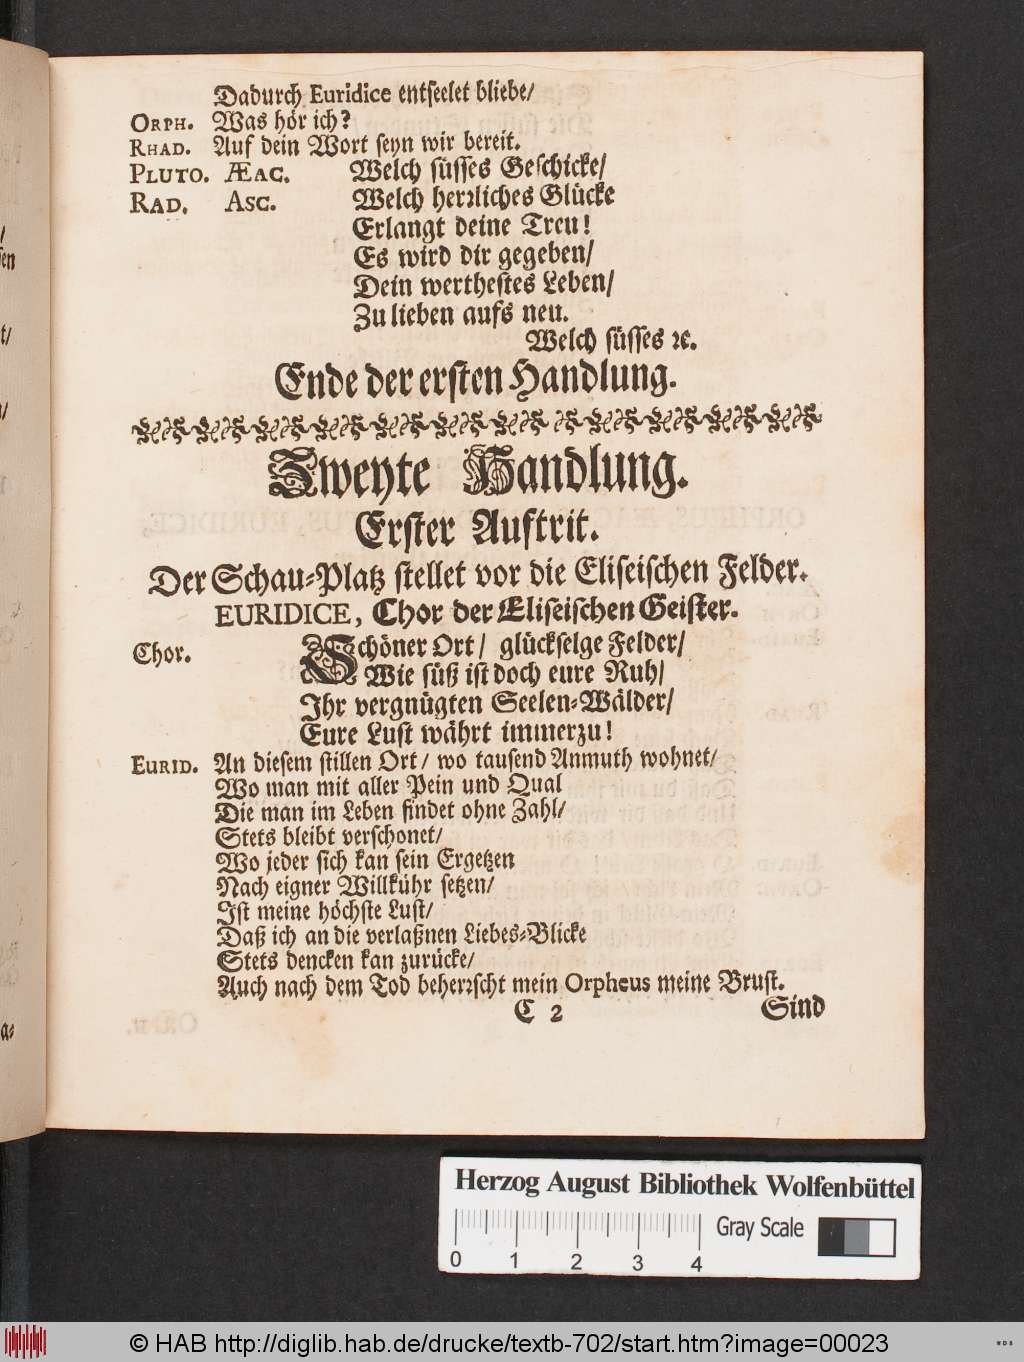 Dadurch Euridice entseelet bliebe/
ORPH. Was hör ich?
RHAD. Auf dein Wort seyn wir bereit.
PLUTO. ÆAC. Welch süsses Geschicke/
RAD. ASC. Welch herrliches Glücke
Erlangt deine Treu!
Es wird dir gegeben/
Dein werthestes Leben/
Zu lieben aufs neu.
Welch süsses ꝛc.
Ende der ersten Handlung.
Zweyte Handlung.
Erster Auftrit.
Der Schau-Platz stellet vor die Eliseischen Felder.
EURIDICE, Chor der Eliseischen Geister.
Chor. Schöner Ort/ glückselge Felder/
Wie süß ist doch eure Ruh/
Ihr vergnügten Seelen-Wälder/
Eure Lust währt immerzu!
EURID. An diesem stillen Ort/ wo tausend Anmuth wohnet/
Wo man mit aller Pein und Qual
Die man im Leben findet ohne Zahl/
Stets bleibt verschonet/
Wo jeder sich kan sein Ergetzen
Nach eigner Willkühr setzen/
Ist meine höchste Lust/
Daß ich an die verlaßnen Liebes-Blicke
Stets dencken kan zurücke/
Auch nach dem Tod beherrscht mein Orpheus meine Brust.
C 2 Sind
Herzog August Bibliothek Wolfenbüttel
Gray Scale
0 1 2 3 4
© HAB http://diglib.hab.de/drucke/textb-702/start.htm?image=00023